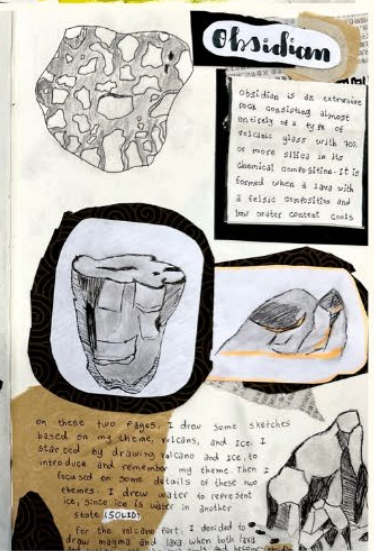 Obsidian
Obsidian is an extrusive
rock consisting almost
entirely of a type of
volcanic glass with 70%
or more silica in its
chemical composition. It is
formed when a lava with
a felsic composition and
low water content cools
On these two Pages, I drew some sketches
based on my theme, volcans, and Ice. I
started by drawing volcano and Ice, to
introduce and remember my theme. Then I
focused on some details of these two
themes. I drew water to represent
ice, since ice is water in another
state (SOLID)
For the volcano part, I decided to
draw magma and lava when both lava